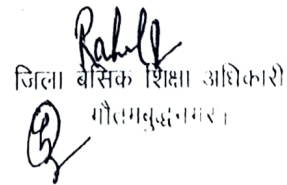 Rahul
जिला बेसिक शिक्षा अधिकारी
गौतमबुद्धनगर।